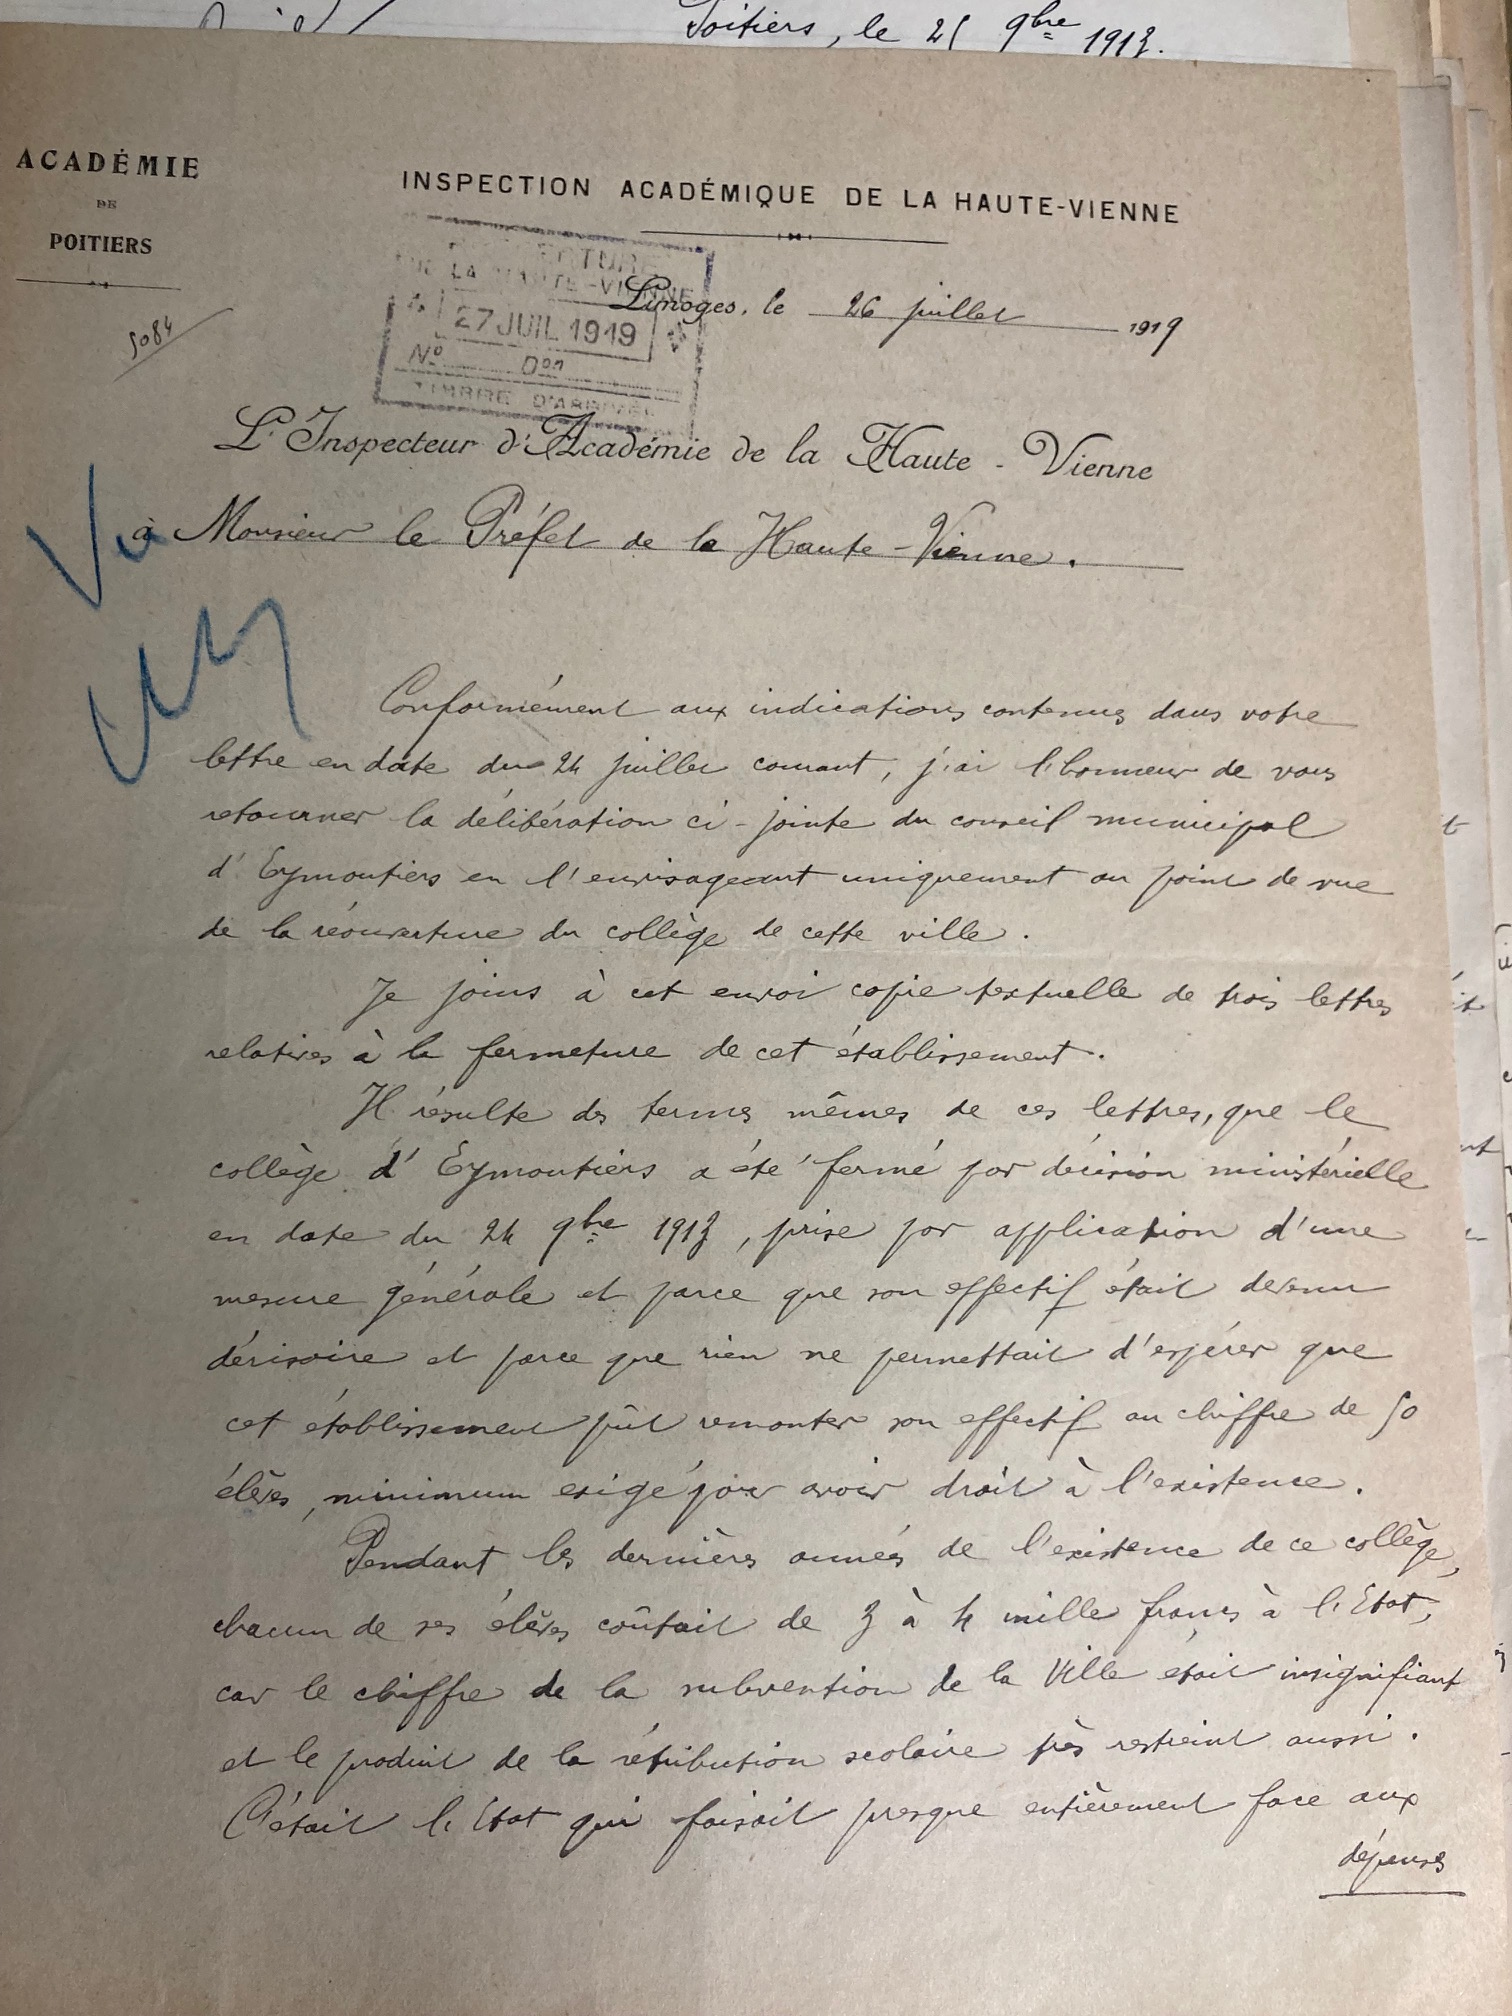 Poitiers, le 25 9bre 1913.
ACADÉMIE
DE
POITIERS
INSPECTION ACADÉMIQUE DE LA HAUTE-VIENNE
DE LA HAUTE-VIENNE
27 JUIL 1919
No Don
TIMBRE D'ARRIVÉE
Limoges, le 26 juillet 1919
5084
L'Inspecteur d'Académie de la Haute-Vienne
à Monsieur le Préfet de la Haute-Vienne.
Vu
Conformément aux indications contenues dans votre
lettre en date du 24 juillet courant, j'ai l'honneur de vous
retourner la délibération ci-jointe du conseil municipal
d'Eymoutiers en l'envisageant uniquement au point de vue
de la réouverture du collège de cette ville.
Je joins à cet envoi copie textuelle de trois lettres
relatives à la fermeture de cet établissement.
Il résulte des termes mêmes de ces lettres, que le
collège d'Eymoutiers a été fermé par décision ministérielle
en date du 24 9bre 1913, prise par application d'une
mesure générale et parce que son effectif était devenu
dérisoire et parce que rien ne permettait d'espérer que
cet établissement pût remonter son effectif au chiffre de 50
élèves, minimum exigé pour avoir droit à l'existence.
Pendant les dernières années de l'existence de ce collège,
chacun de ses élèves coûtait de 3 à 4 mille francs à l'Etat,
car le chiffre de la subvention de la Ville était insignifiant
et le produit de la rétribution scolaire très restreint aussi.
C'était l'Etat qui faisait presque entièrement face aux
dépenses